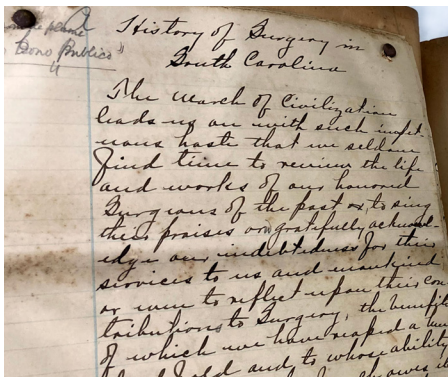 plume
Bono Publico"
History of Surgery in
South Carolina
The march of Civilization
leads us on with such impet
uous haste that we seldom
find time to review the life
and works of our honored
Surgeons of the past or, to sing
their praises or gratefully acknowl
edge our indebtedness for their
services to us and mankind
or even to reflect upon their con
tributions to Surgery, the benefits
of which we have reaped a hun
and to whose ability